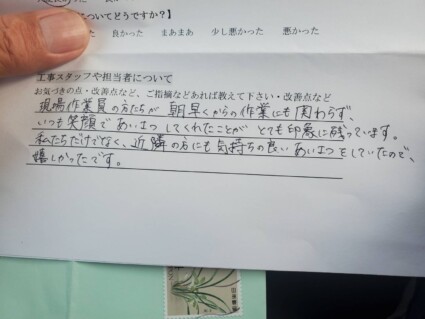 についてどうですか？】
た 良かった まあまあ 少し悪かった 悪かった
工事スタッフや担当者について
お気づきの点・改善点など、ご指摘などあれば教えて下さい・改善点など
現場作業員の方たちが 朝早くからの作業にも関わらず、
いつも笑顔であいさつしてくれたことが とても印象に残っています。
私たちだけでなく、近隣の方にも気持ちの良いあいさつをしていたので、
嬉しかったです。
日本郵便